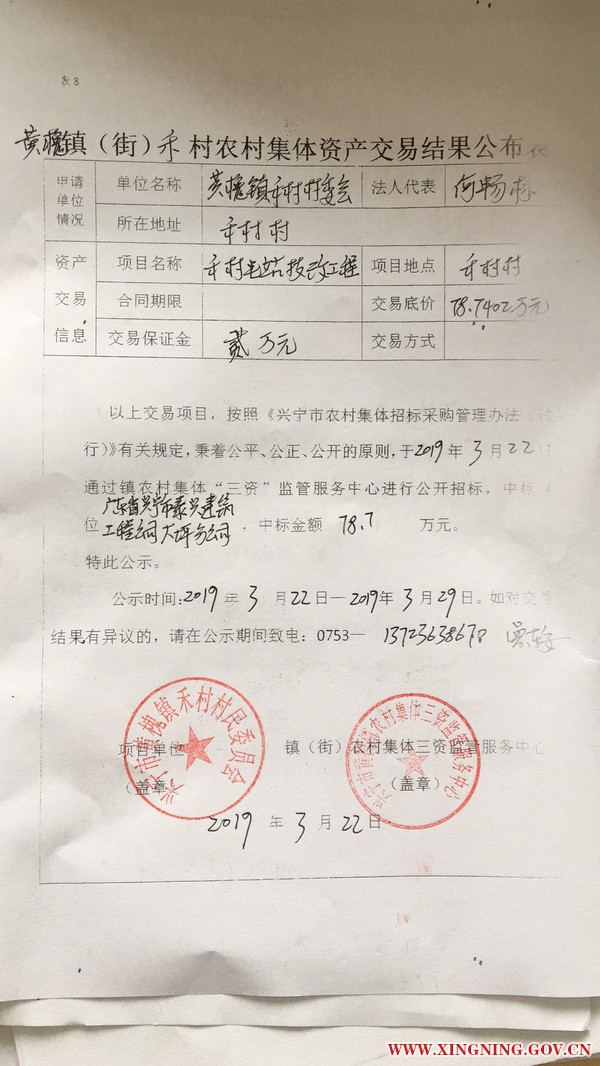 表8
黄槐镇（街）禾 村农村集体资产交易结果公布表
申请单位情况 单位名称 黄槐镇禾村村委会 法人代表 何畅
所在地址 禾村村
资产交易信息 项目名称 禾村电站技改工程 项目地点 禾村村
合同期限 交易底价 78.7402万元
交易保证金 贰万元 交易方式
以上交易项目，按照《兴宁市农村集体招标采购管理办法
行）》有关规定，秉着公平、公正、公开的原则,于2019年3月22
通过镇农村集体“三资”监管服务中心进行公开招标，中标
位广东省兴宁市泰兴建筑
工程公司大坪分公司，中标金额 78.7 万元。
特此公示。
公示时间:2019年3月22日—2019年3月29日。如对交
结果有异议的，请在公示期间致电：0753— 13723638678
项目单位 镇（街）农村集体三资监管服务中心
（盖章） （盖章）
兴宁市黄槐镇禾村村民委员会
兴宁市黄槐镇农村集体三资监管服务中心
2019年3月22日
WWW.XINGNING.GOV.CN